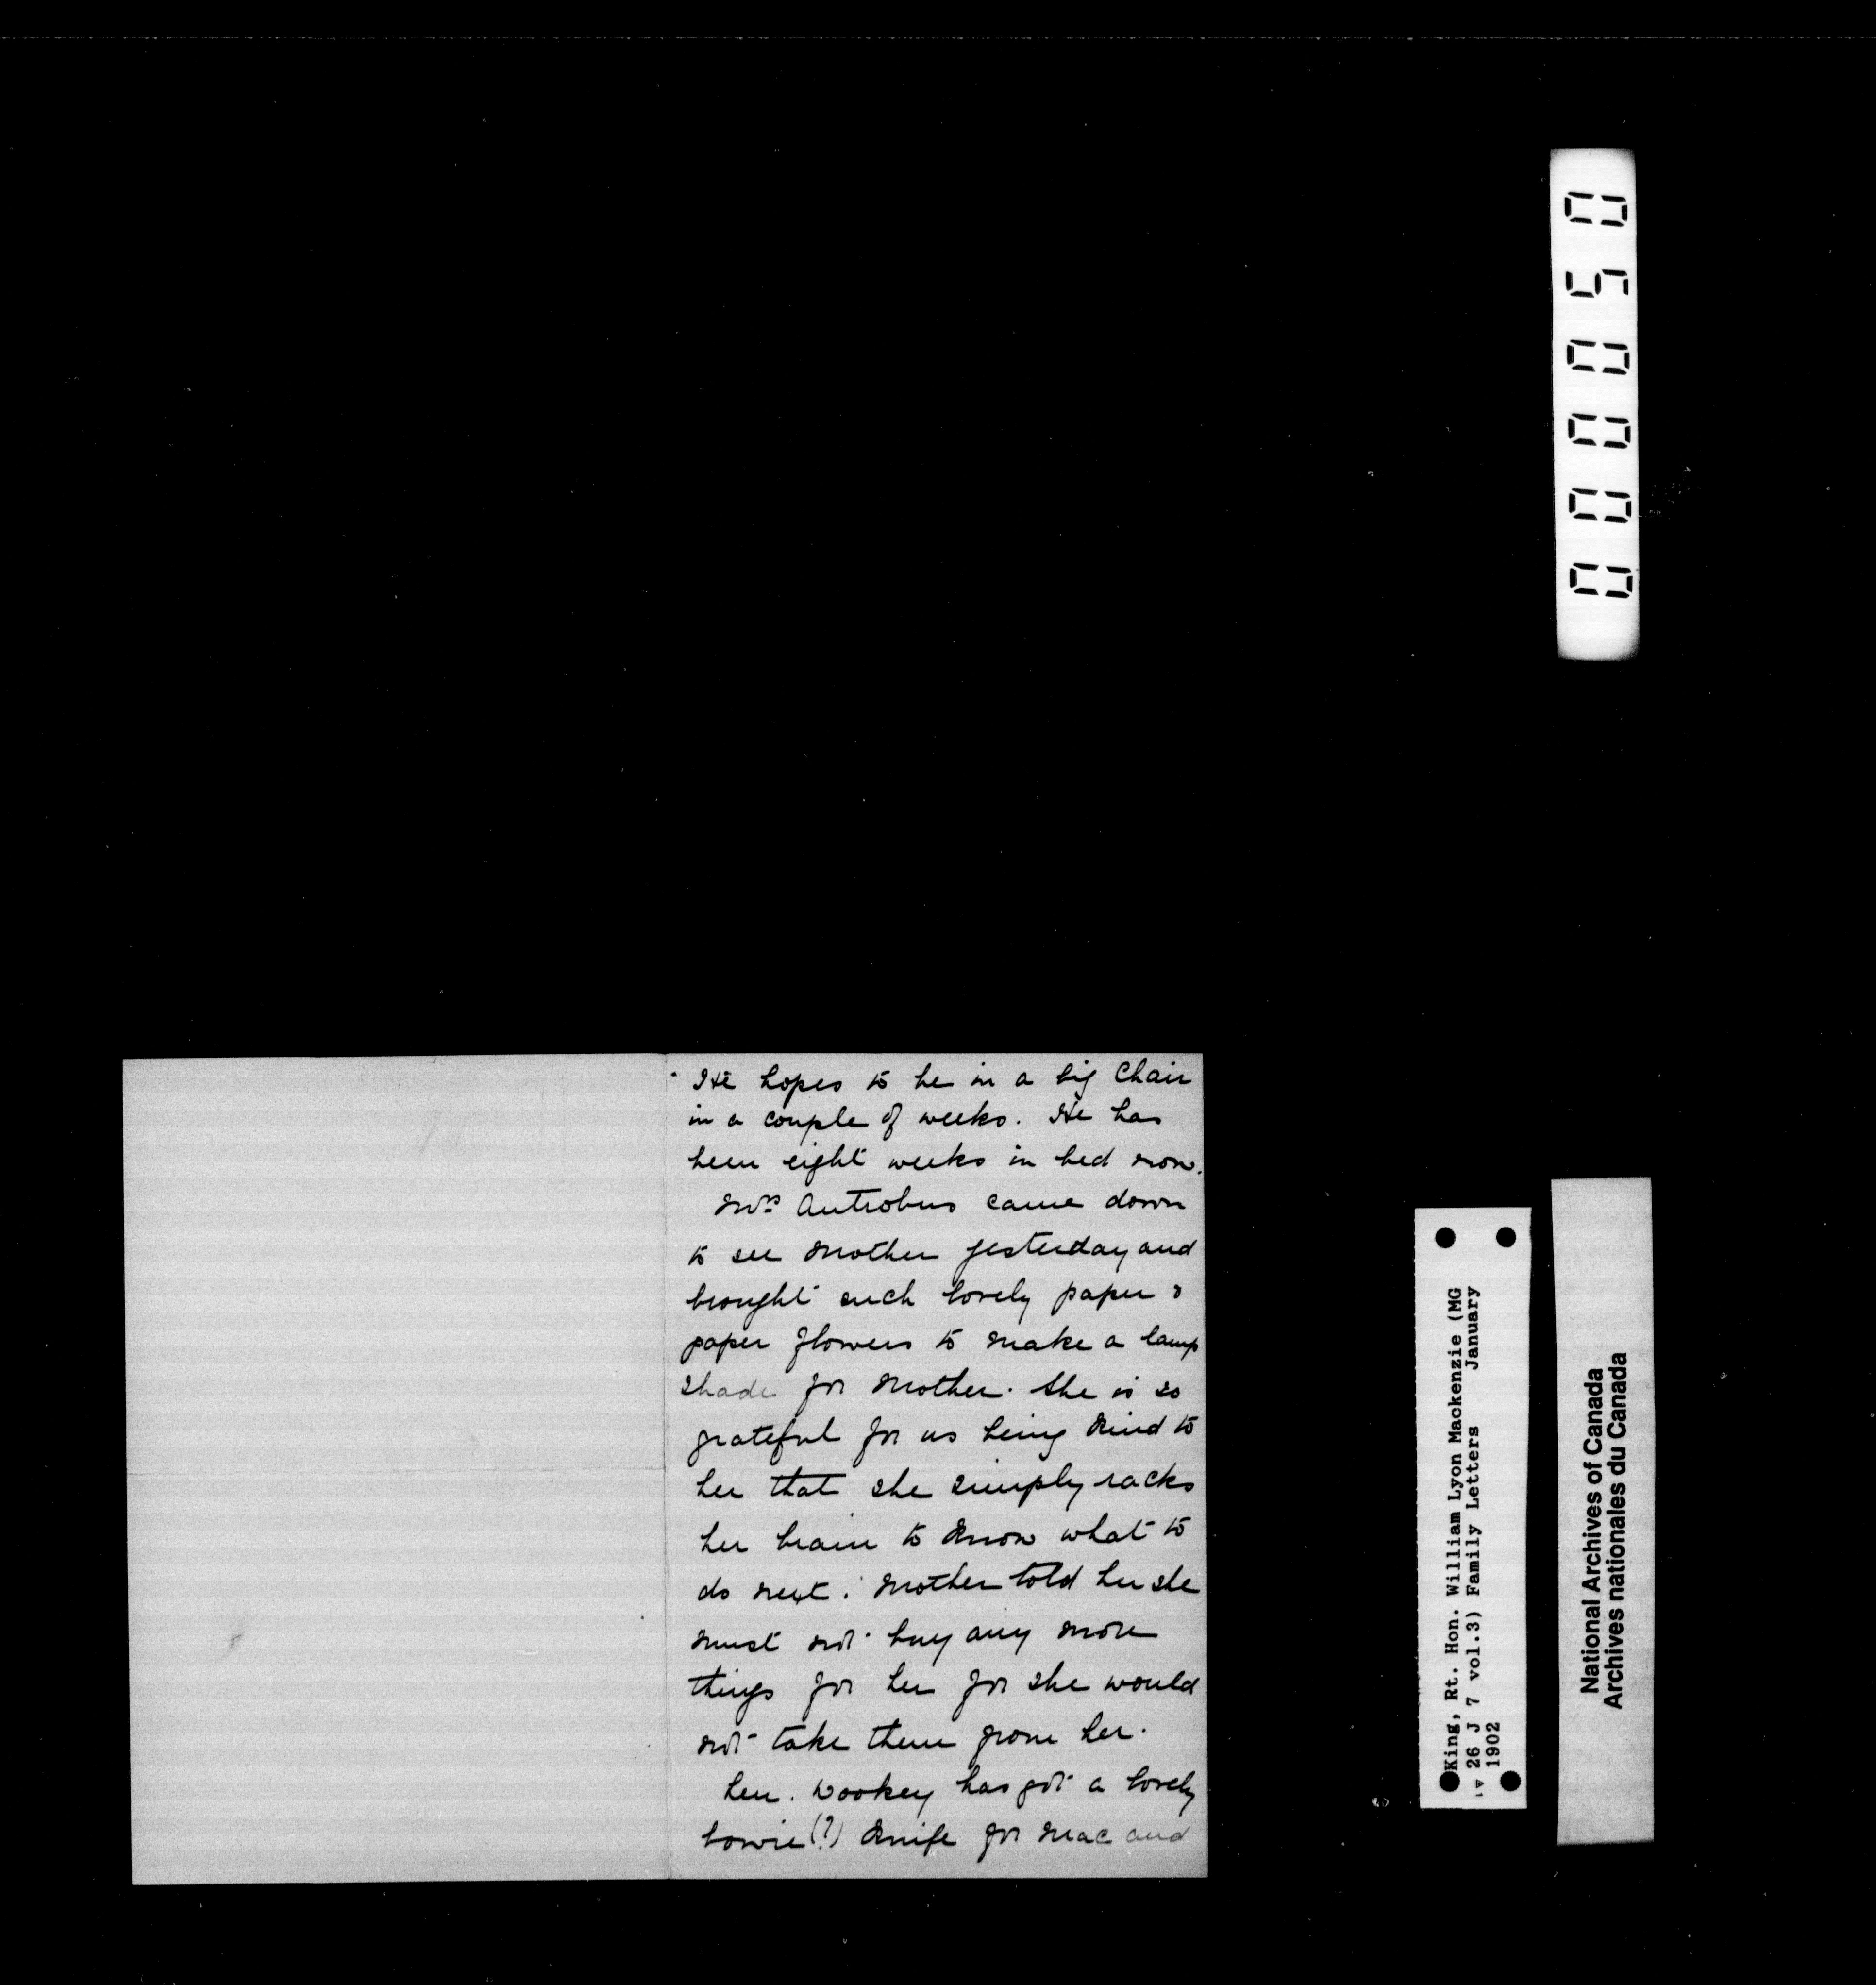 He hopes to be in a big Chair
in a couple of weeks. He has
been eight weeks in bed now.
Mrs Antrobus came down
to see Mother yesterday and
brought such lovely paper &
paper flowers to make a lamp
shade for Mother. She is so
grateful for us being kind to
her that she simply racks
her brain to know what to
do next. Mother told her she
must not buy any more
things for her for she would
not take them from her.
Wookey has got a lovely
bowie (?) knife for Mac and
000050
King, Rt. Hon. William Lyon Mackenzie (MG
26 J 7 vol.3) Family Letters January
1902
National Archives of Canada
Archives nationales du Canada